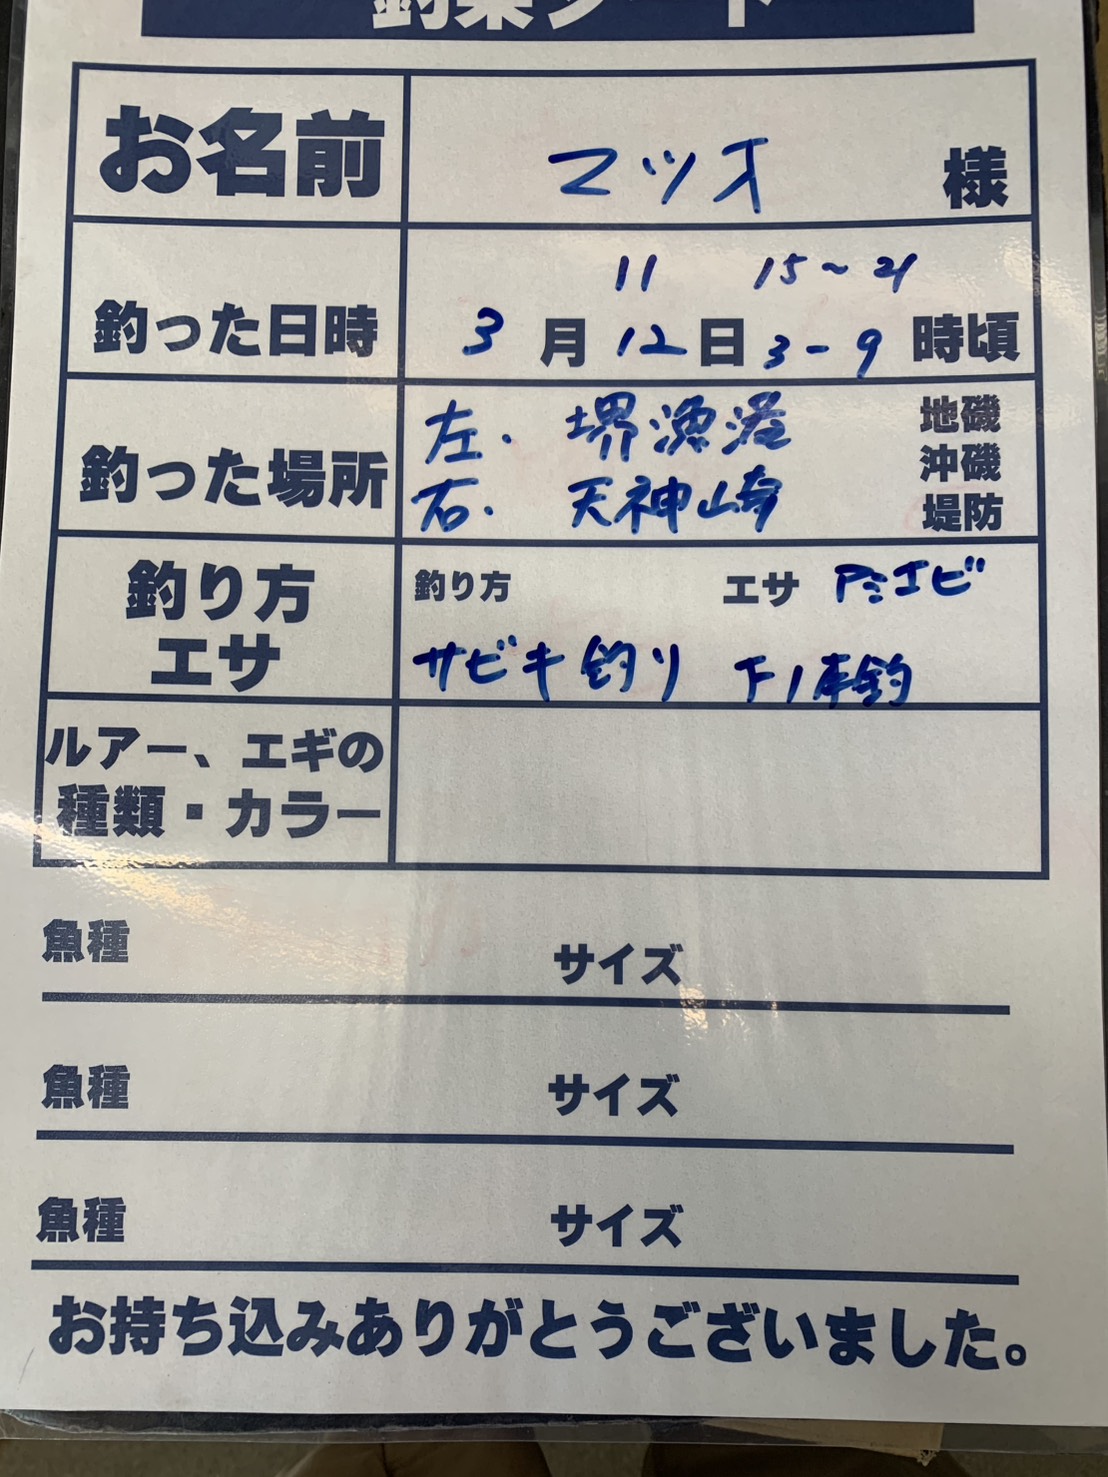 釣果シート
お名前 マツオ 様
11 15～21
釣った日時 3月12日3-9時頃
左. 堺漁港 地磯
釣った場所 沖磯
右. 天神崎 堤防
釣り方 釣り方 エサ アミエビ
エサ サビキ釣り 下カゴ釣
ルアー、エギの
種類・カラー
魚種 サイズ
魚種 サイズ
魚種 サイズ
お持ち込みありがとうございました。